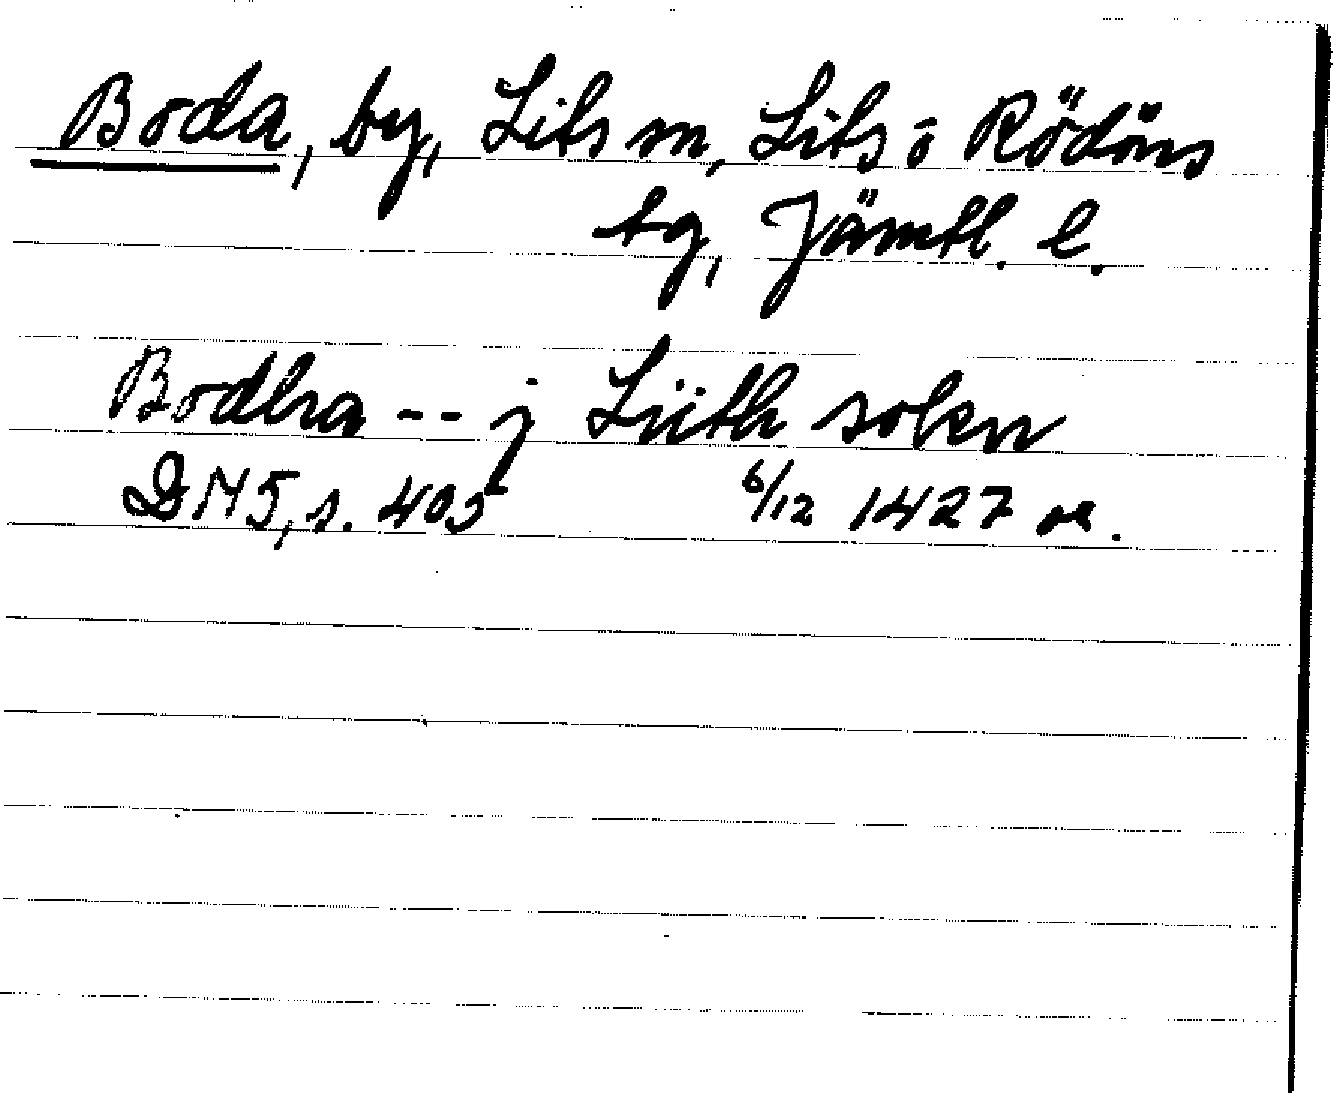 Boda, by, Lits sn, Lits o Rödöns
tg, Jämtl. l.
Bodhra -- j Liith sokn
DN 5, s. 405 6/12 1427 or.